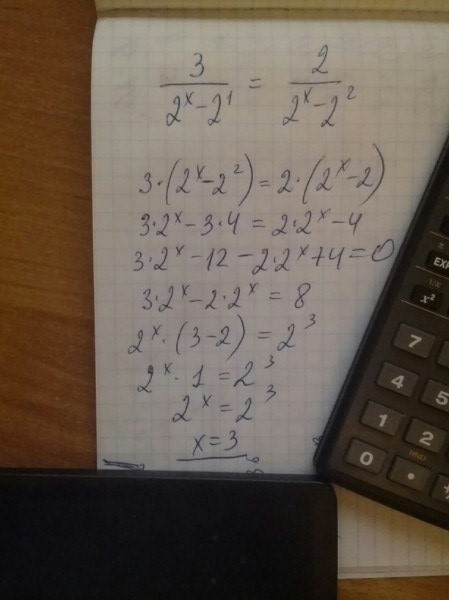 3/(2^x-2^1) = 2/(2^x-2^2)
3·(2^x-2^2)=2·(2^x-2)
3·2^x-3·4=2·2^x-4
3·2^x-12-2·2^x+4=0
3·2^x-2·2^x=8
2^x·(3-2)=2^3
2^x·1=2^3
2^x=2^3
x=3
EXP
x²
7
4 5
1 2
0 ·